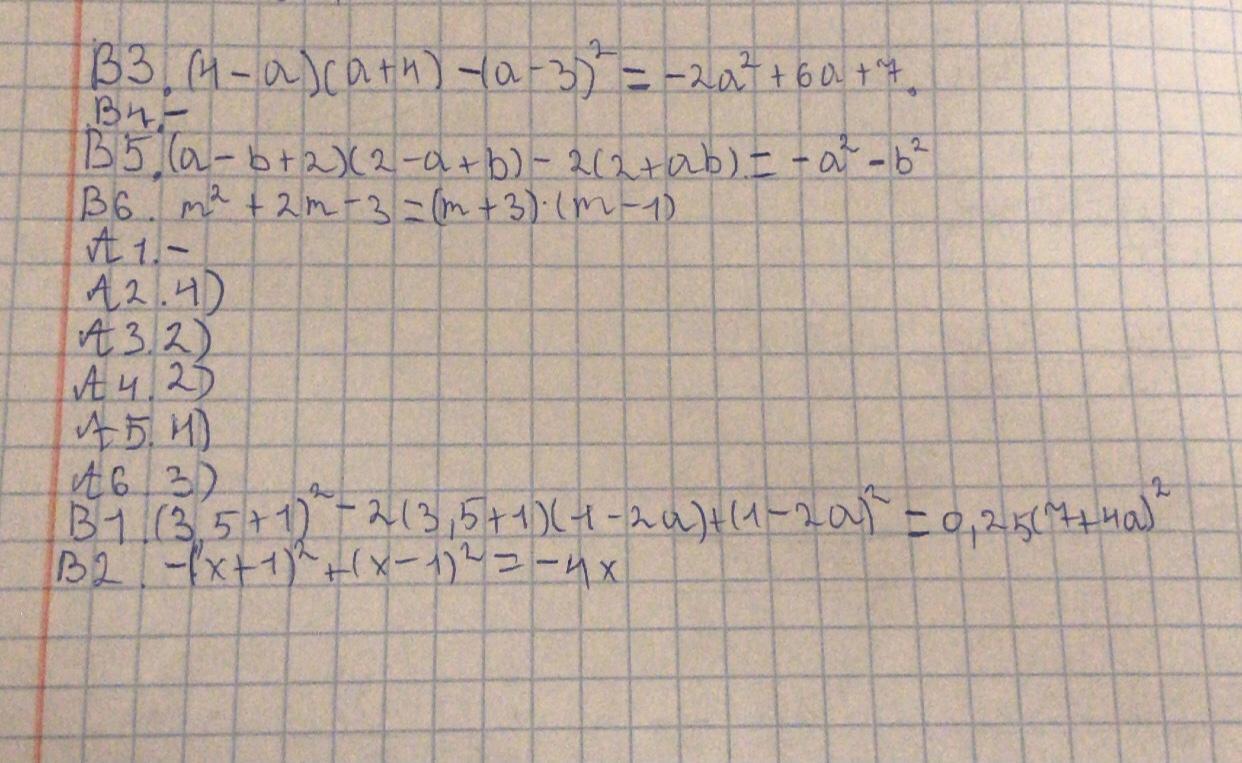 В3. (4-a)(a+4)-(a-3)² = -2a²+6a+7.
В4.-
В5.(a-b+2)(2-a+b)-2(2+ab)=-a²-b²
В6. m²+2m-3=(m+3)·(m-1)
А1.-
А2.4)
А3.2)
А4.2)
А5.4)
А6.3)
В1.(3,5+1)²-2(3,5+1)(1-2a)+(1-2a)²=0,25(7+4a)²
В2.-(x+1)²+(x-1)²=-4x